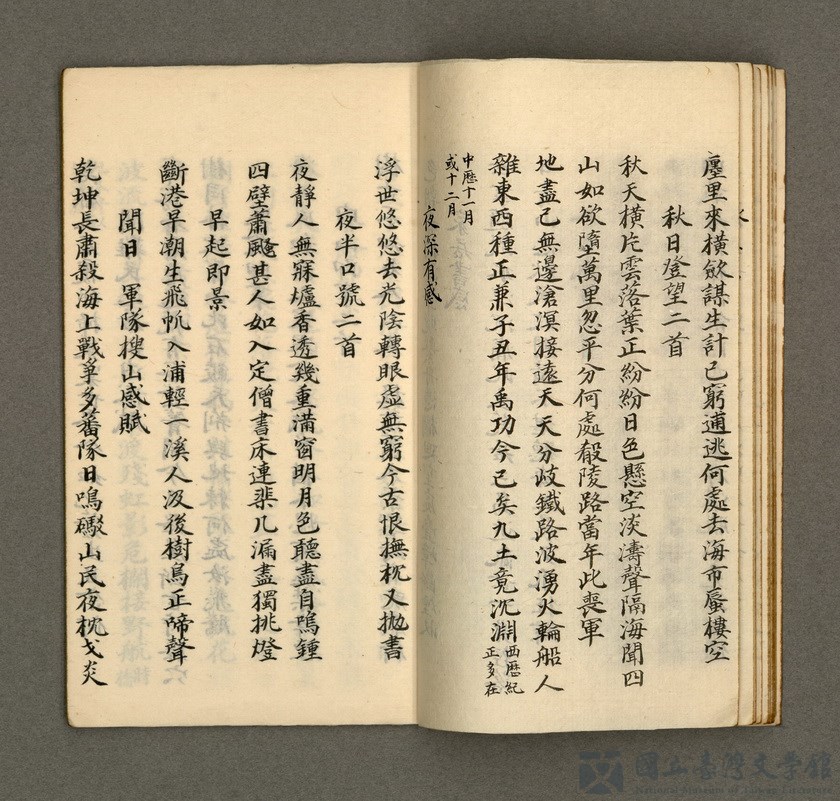 廛里來橫歛謀生計已窮逋逃何處去海市蜃樓空
秋日登望二首
秋天橫片雲落葉正紛紛日色懸空淡濤聲隔海聞四
山如欲墮萬里忽平分何處殽陵路當年此喪軍
地盡已無邊滄溟接遠天天分歧鐵路波湧火輪船人
雜東西種正兼子丑年禹功今已矣九土竟沉淵
西曆紀
正多在
中曆十一月
或十二月
夜深有感
浮世悠悠去光陰轉眼虛無窮今古恨撫枕又拋書
夜半口號二首
夜靜人無寐爐香透幾重滿窗明月色聽盡自鳴鍾
四壁蕭颼甚人如入定僧書床連棐几漏盡獨挑燈
早起即景
斷港早潮生飛帆入浦輕一溪人汲後樹鳥正啼聲
聞日 軍隊搜山感賦
乾坤長肅殺海上戰爭多蕃隊日鳴礮山民夜枕戈炎
國立臺灣文學館
National Museum of Taiwan Literature